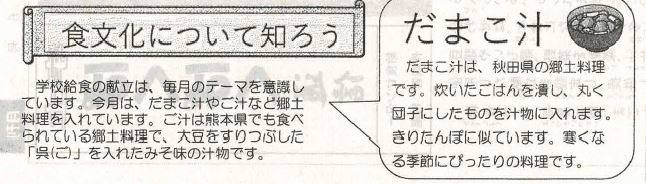 食文化について知ろう
学校給食の献立は、毎月のテーマを意識し
ています。今月は、だまこ汁やご汁など郷土
料理を入れています。ご汁は熊本県でも食べ
られている郷土料理で、大豆をすりつぶした
「呉(ご)」を入れたみそ味の汁物です。
だまこ汁
だまこ汁は、秋田県の郷土料理
です。炊いたごはんを潰し、丸く
団子にしたものを汁物に入れます。
きりたんぽに似ています。寒くな
る季節にぴったりの料理です。